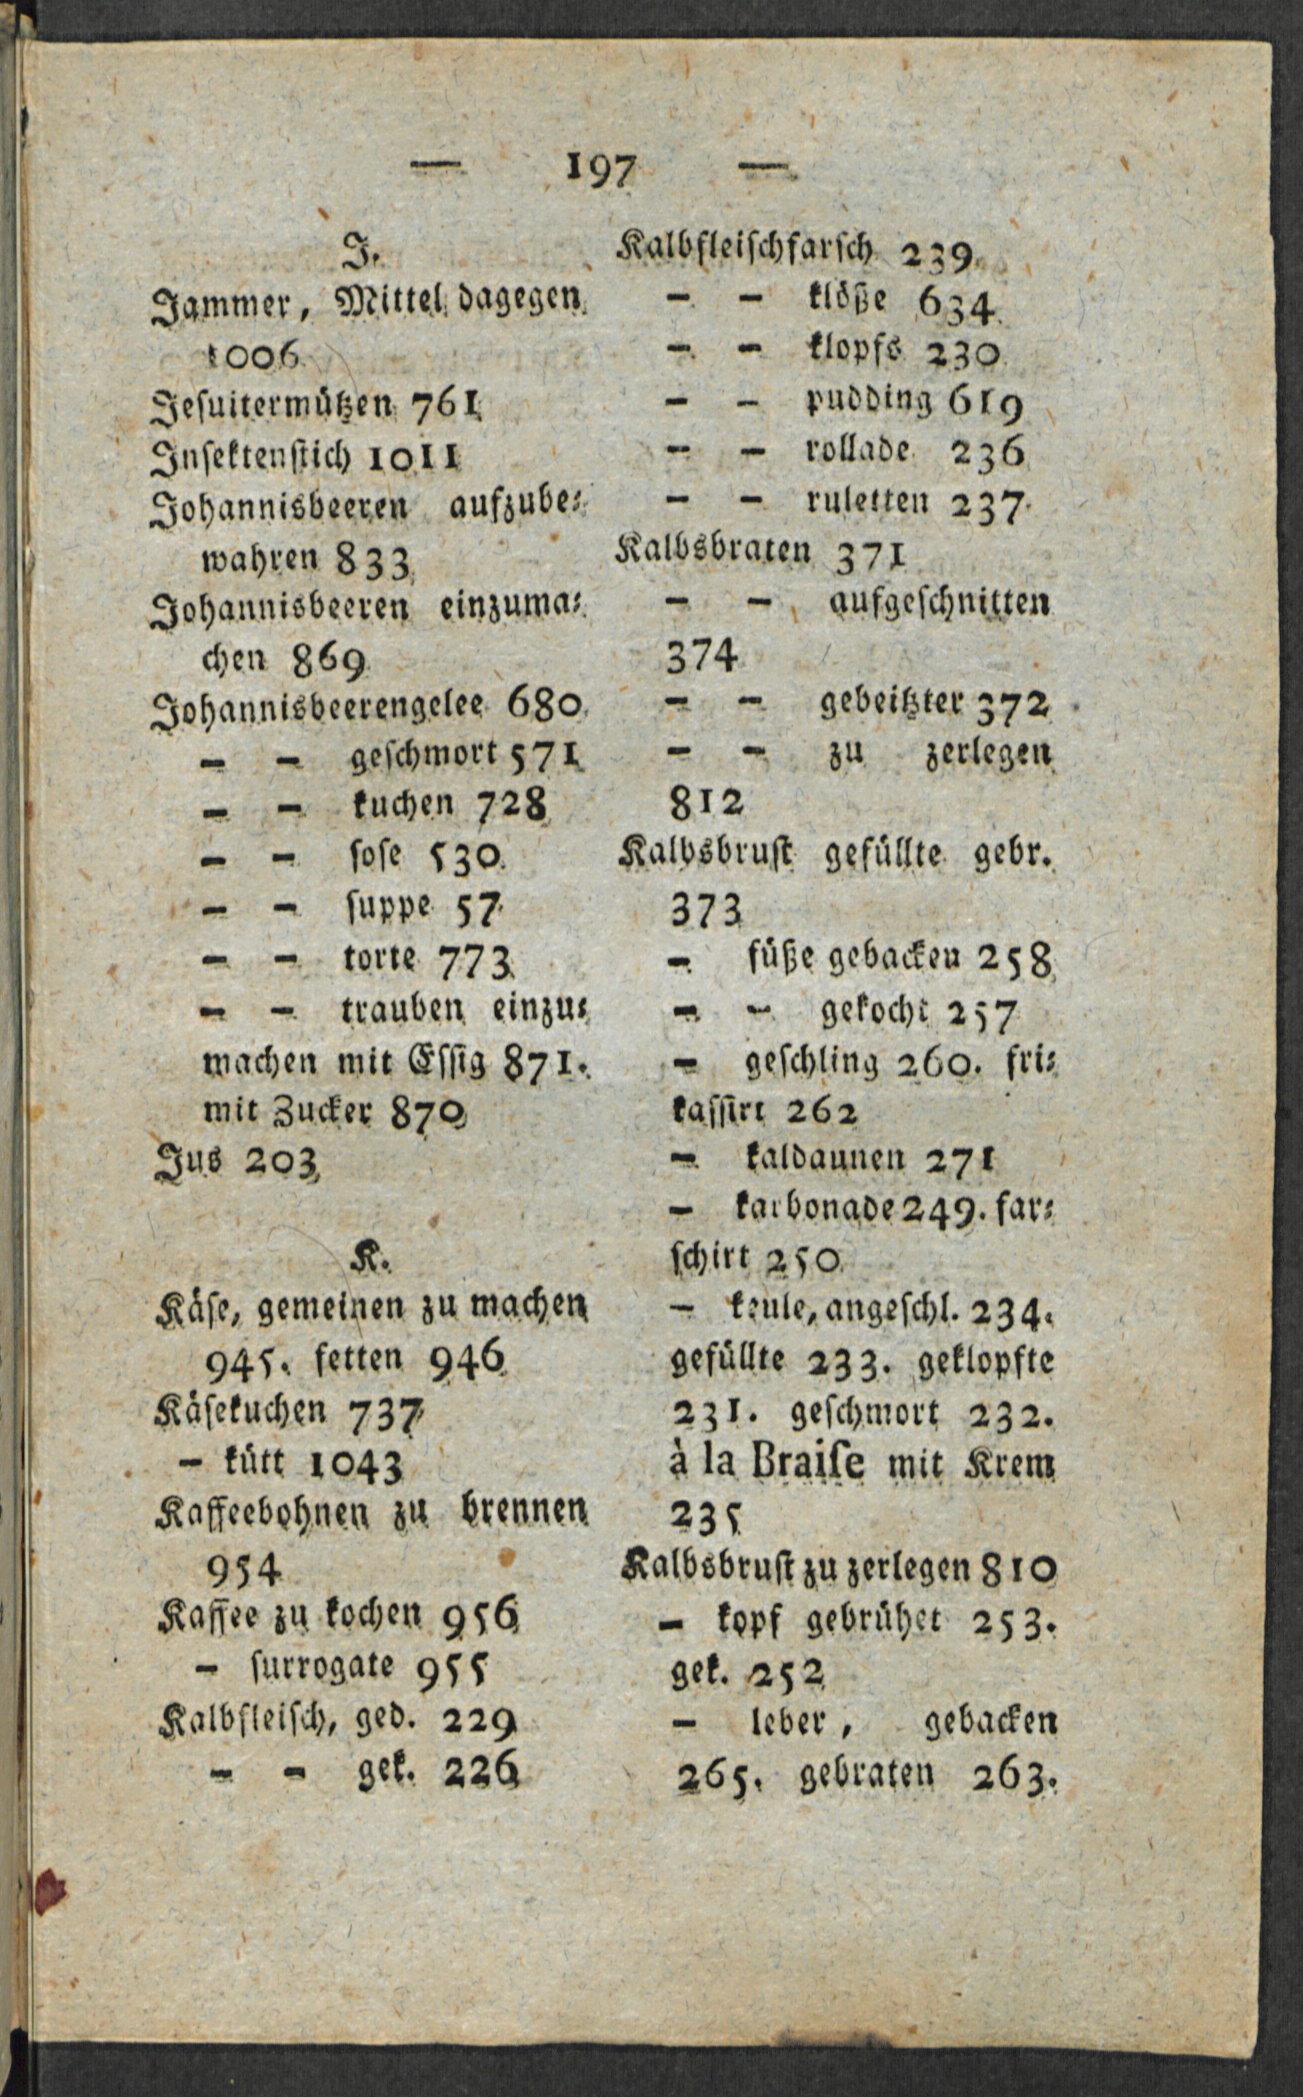 — 197 —
J.
Jammer, Mittel dagegen
1006
Jesuitermützen 761
Insektenstich 1011
Johannisbeeren aufzube⸗
wahren 833
Johannisbeeren einzuma⸗
chen 869
Johannisbeerengelee 680
– – geschmort 571
– – kuchen 728
– – sose 530
– – suppe 57
– – torte 773
– – trauben einzu⸗
machen mit Essig 871.
mit Zucker 870
Jus 203
K.
Käse, gemeinen zu machen
945. fetten 946
Käsekuchen 737
– kütt 1043
Kaffeebohnen zu brennen
954
Kaffee zu kochen 956
– surrogate 955
Kalbfleisch, ged. 229
– – gek. 226
Kalbfleischfarsch 239
– – klöße 634
– – klopfs 230
– – pudding 619
– – rollade 236
– – ruletten 237
Kalbsbraten 371
– – aufgeschnitten
374
– – gebeitzter 372
– – zu zerlegen
812
Kalbsbrust gefüllte gebr.
373
– füße gebacken 258
– – gekocht 257
– geschling 260. fri⸗
kassirt 262
– kaldaunen 271
– karbonade 249. far⸗
schirt 250
– keule, angeschl. 234.
gefüllte 233. geklopfte
231. geschmort 232.
à la Braise mit Krem
235
Kalbsbrust zu zerlegen 810
– kopf gebrühet 253.
gek. 252
– leber, gebacken
265. gebraten 263.